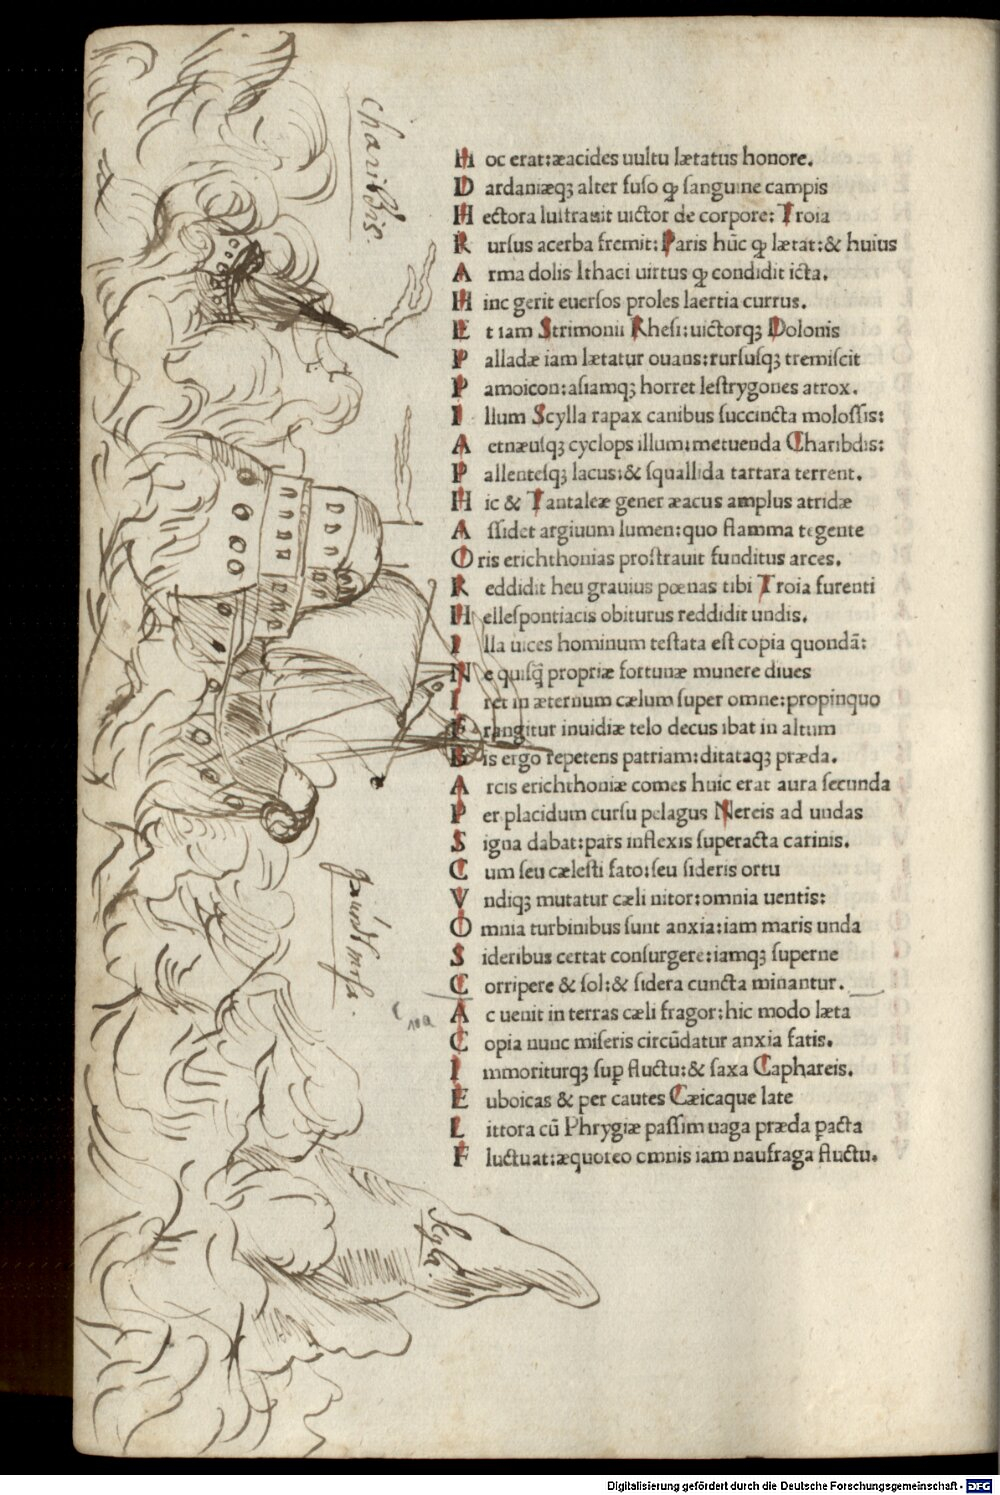 charibdis.
H oc erat:æacides uultu lætatus honore.
D ardaniæqȝ alter fuso ꝙ sanguine campis
H ectora lustrauit uictor de corpore: Troia
R ursus acerba fremit: Paris hūc ꝙ lætat:& huius
A rma dolis Ithaci uirtus ꝙ condidit icta.
H inc gerit euersos proles laertia currus.
E t iam Strimonii Rhesi:uictorqȝ Dolonis
P alladæ iam lætatur ouans:rursusqȝ tremiscit
P amoicon:asiamqȝ horret lestrygones atrox.
I llum Scylla rapax canibus succincta molossis:
A etnæusqȝ cyclops illum:metuenda Charibdis:
P allentesqȝ lacus:& squallida tartara terrent.
H ic & Tantaleæ gener æacus amplus atridæ
A ssidet argiuum lumen:quo flamma tegente
O ris erichthonias prostrauit funditus arces.
R eddidit heu grauius pœnas tibi Troia furenti
H ellespontiacis obiturus reddidit undis.
I lla uices hominum testata est copia quondā:
N e quisq̄ propriæ fortunæ munere diues
I ret in æternum cælum super omne:propinquo
F rangitur inuidiæ telo decus ibat in altum
B is ergo repetens patriam:ditataqȝ præda.
A rcis erichthoniæ comes huic erat aura secunda
P er placidum cursu pelagus Nereis ad undas
S igna dabat:pars inflexis superacta carinis.
C um seu cælesti fato:seu sideris ortu
V ndiqȝ mutatur cæli nitor:omnia uentis:
O mnia turbinibus sunt anxia:iam maris unda
S ideribus certat consurgere:iamqȝ superne
C orripere & sol:& sidera cuncta minantur.
A c uenit in terras cæli fragor:hic modo læta
C opia nunc miseris circūdatur anxia fatis.
I mmoriturqȝ sup̱ fluctu:& saxa Caphareis.
E uboicas & per cautes Cæicaque late
L ittora cū Phrygiæ passim uaga præda p̱acta
F luctuat:æquoreo omnis iam naufraga fluctu.
Scyla.
Digitalisierung gefördert durch die Deutsche Forschungsgemeinschaft - DFG